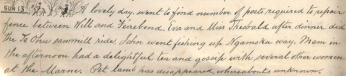 SUN 13 A lovely day, went to find number of posts required to repair
fence between Hill and Firebend, Eva and Miss Treweld after dinner did
the Te Ohu sawmill ride; John went fishing up Ngamoko way. Mem in
the afternoon had a delightful tea and gossip with several other women
at the Manse. Pet lamb has disappeared whereabouts unknown.